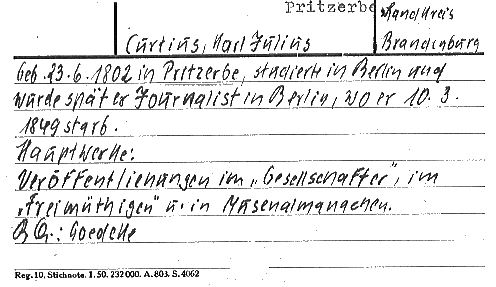 Pritzerbe
Landkreis
Curtius, Karl Julius
Brandenburg
geb. 23.6.1802 in Pritzerbe, studierte in Berlin und
wurde später Journalist in Berlin, wo er 10.3.
1849 starb.
Hauptwerke:
Veröffentlichungen im „Gesellschafter", im
„Freimüthigen" u. in Musenalmanachen.
BQ.: Goedeke
Reg. 10. Stichnote. I. 50. 232000. A. 803. S. 4062